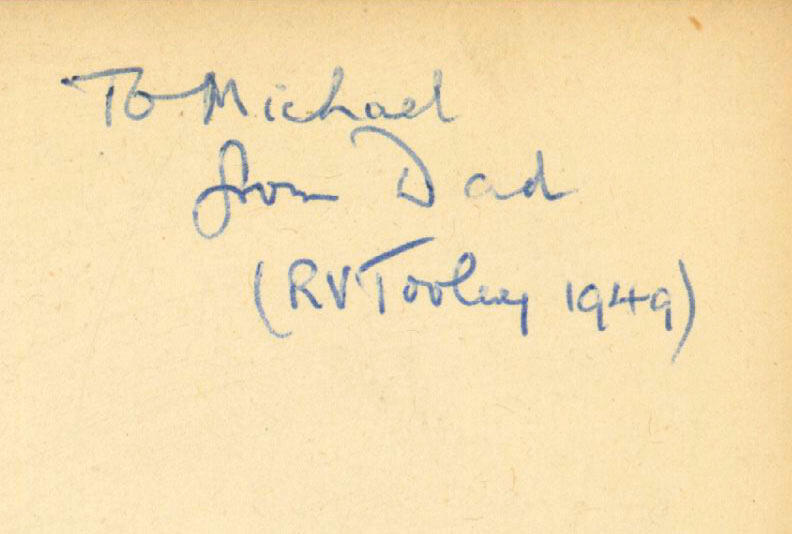 To Michael
from Dad
(RVTooley 1949)